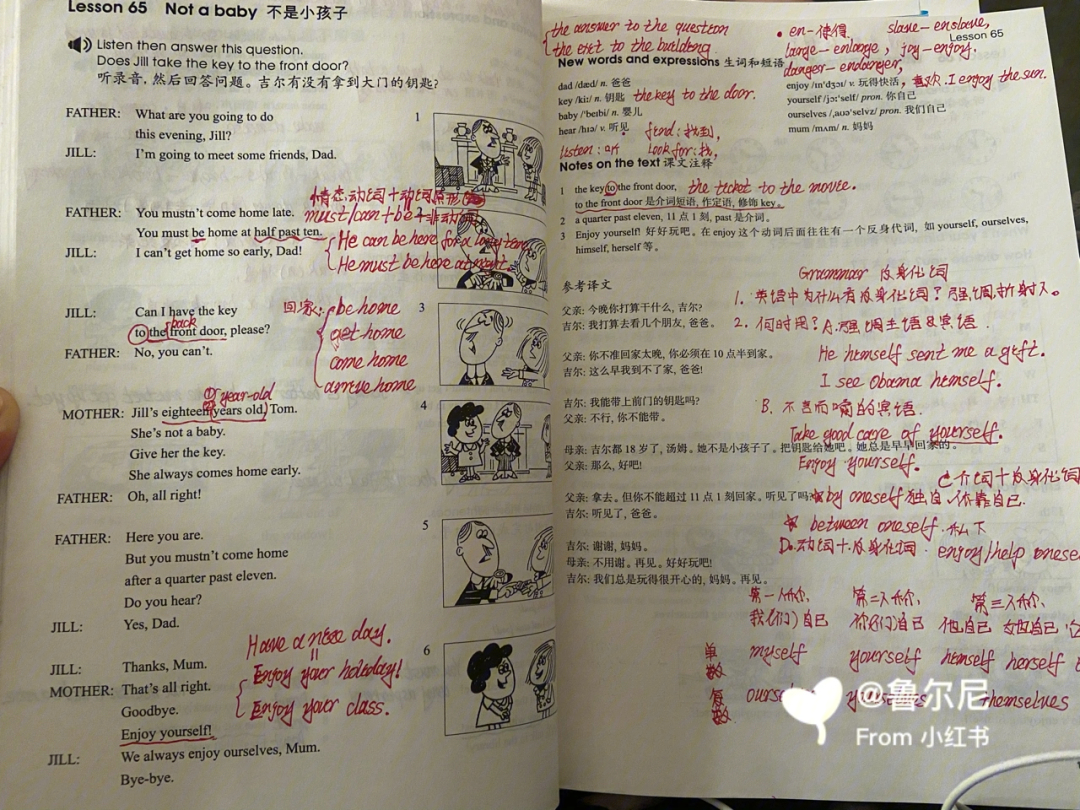 Lesson 65 Not a baby 不是小孩子
Listen then answer this question.
Does Jill take the key to the front door?
听录音,然后回答问题。吉尔有没有拿到大门的钥匙?
FATHER: What are you going to do
this evening, Jill?
JILL: I'm going to meet some friends, Dad.
1
情态动词+动词原形
FATHER: You mustn't come home late.
must/can+be+非动词
You must be home at half past ten.
He can be here for a long time
JILL: I can't get home so early, Dad!
He must be here at night.
JILL: Can I have the key
to the front door, please?
back
FATHER: No, you can't.
回家: be home
get home
come home
arrive home
3
year-old
MOTHER: Jill's eighteen years old, Tom.
She's not a baby.
Give her the key.
She always comes home early.
FATHER: Oh, all right!
4
FATHER: Here you are.
But you mustn't come home
after a quarter past eleven.
Do you hear?
JILL: Yes, Dad.
5
Have a nice day.
JILL: Thanks, Mum.
Enjoy your holiday!
MOTHER: That's all right.
Goodbye.
Enjoy your class.
Enjoy yourself!
JILL: We always enjoy ourselves, Mum.
Bye-bye.
6
the answer to the question
the exit to the building
en-使得 slave-enslave,
Lesson 65
large-enlarge, joy-enjoy.
danger-endanger,
New words and expressions 生词和短语
dad /dæd/ n. 爸爸
key /kiː/ n. 钥匙 the key to the door.
baby /'beibi/ n. 婴儿
hear /hɪə/ v. 听见 find:找到,
listen:听 look for:找,
enjoy /ɪn'dʒɔɪ/ v. 玩得快活, 喜欢. I enjoy the sun.
yourself /jɔː'self/ pron. 你自己
ourselves /ˌaʊə'selvz/ pron. 我们自己
mum /mʌm/ n. 妈妈
Notes on the text 课文注释
1 the key to the front door, the ticket to the movie.
to the front door 是介词短语,作定语,修饰 key。
2 a quarter past eleven, 11 点 1 刻, past 是介词。
3 Enjoy yourself! 好好玩吧。在 enjoy 这个动词后面往往有一个反身代词, 如 yourself, ourselves,
himself, herself 等。
Grammar 反身代词
参考译文
1. 英语中为什么有反身代词?
父亲:今晚你打算干什么,吉尔?
吉尔:我打算去看几个朋友,爸爸。
2. 何时用? A. 强调主语&宾语.
He himself sent me a gift.
父亲:你不准回家太晚,你必须在 10 点半到家。
吉尔:这么早我到不了家,爸爸!
I see Obama himself.
吉尔:我能带上前门的钥匙吗?
父亲:不行,你不能带。
B. 不言而喻的宾语.
Take good care of yourself.
母亲:吉尔都 18 岁了,汤姆。她不是小孩子了。把钥匙给她吧。她总是早早回家的。
父亲:那么,好吧!
Enjoy yourself.
C 介词+反身代词
父亲:拿去。但你不能超过 11 点 1 刻回家。听见了吗?
by oneself 独自,依靠自己.
吉尔:听见了,爸爸。
between oneself. 私下
D. 动词+反身代词. enjoy/help
吉尔:谢谢,妈妈。
母亲:不用谢。再见。好好玩吧!
吉尔:我们总是玩得很开心的,妈妈。再见。
第一人称, 第二人称, 第三人称,
我(们)自己 你(们)自己 他自己 她自己
单数 myself yourself himself herself
复数 themselves
@鲁尔尼
From 小红书